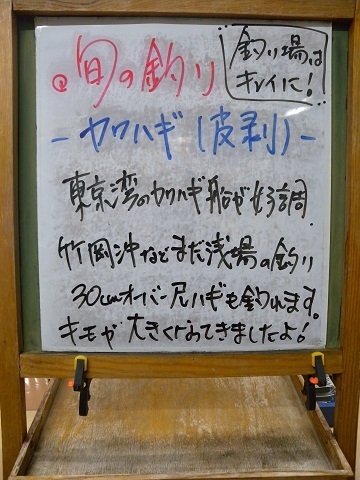 旬の釣り
釣り場は
キレイに！
－カワハギ（皮剥）－
東京湾のカワハギ船が好調
竹岡沖などまだ浅場の釣り
30cmオーバー尺ハギも釣れます。
キモが大きくなってきましたよ！